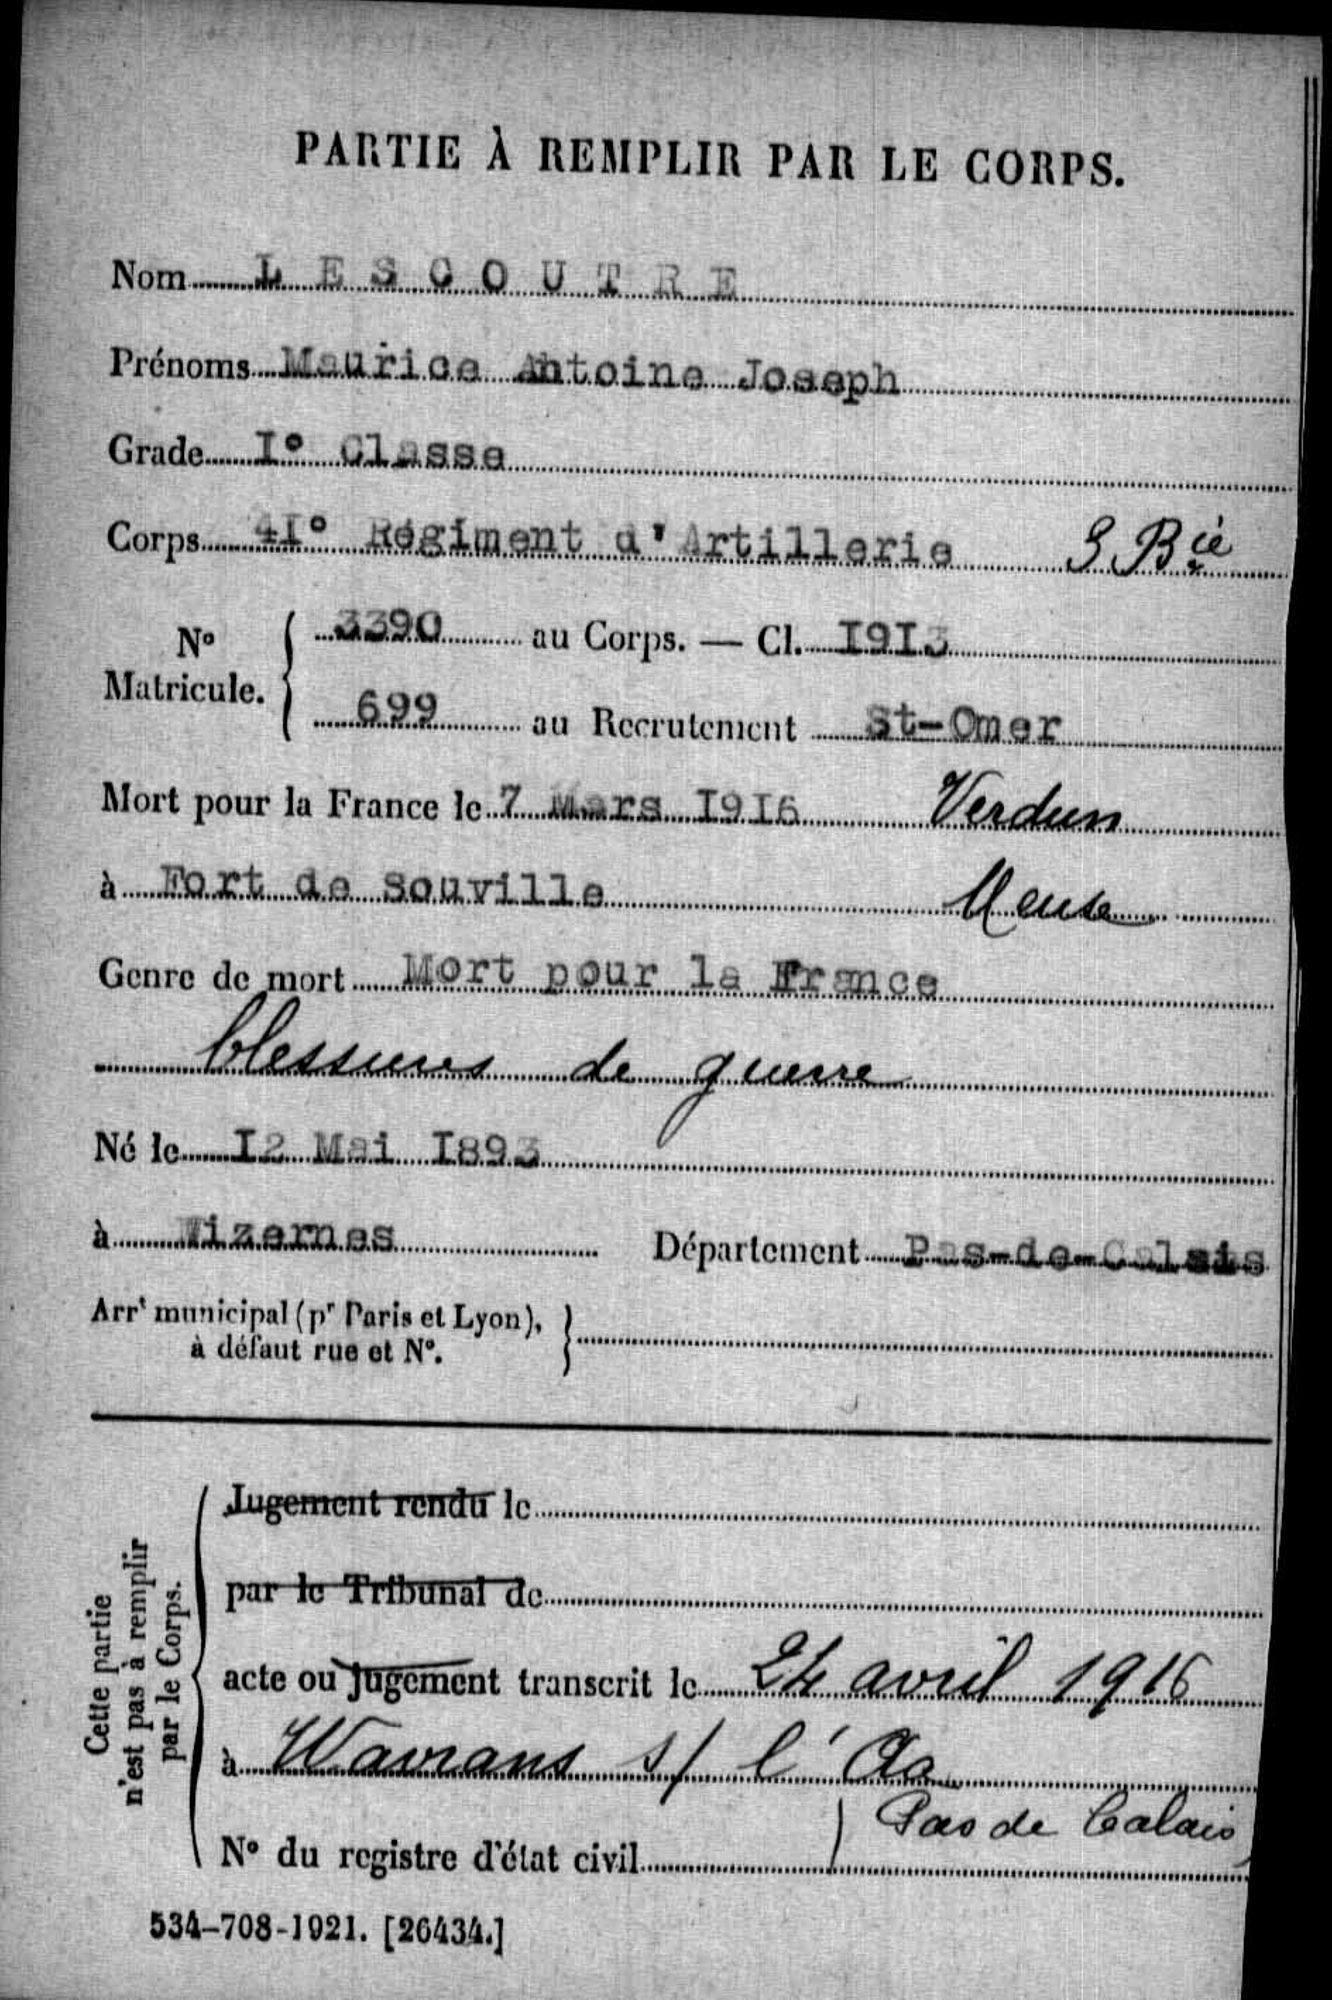 PARTIE À REMPLIR PAR LE CORPS.
Nom LESCOUTRE
Prénoms Maurice Antoine Joseph
Grade I° Classe
Corps 41° Régiment d'Artillerie Bie
No Matricule. 3390 au Corps. — Cl. I9I3
699 au Recrutement St-Omer
Mort pour la France le 7 Mars I9I6 Verdun
à Fort de Souville Meuse
Genre de mort Mort pour la France
blessures de guerre
Né le I2 Mai I893
à Wizernes Département Pas-de-Calais
Arrt municipal (pr Paris et Lyon),
à défaut rue et N°.
Cette partie
n'est pas à remplir
par le Corps.
Jugement rendu le
par le Tribunal de
acte ou jugement transcrit le 24 avril 1916
à Wavrans s/ l'Aa
Pas de Calais
N° du registre d'état civil
534-708-1921. [26434.]